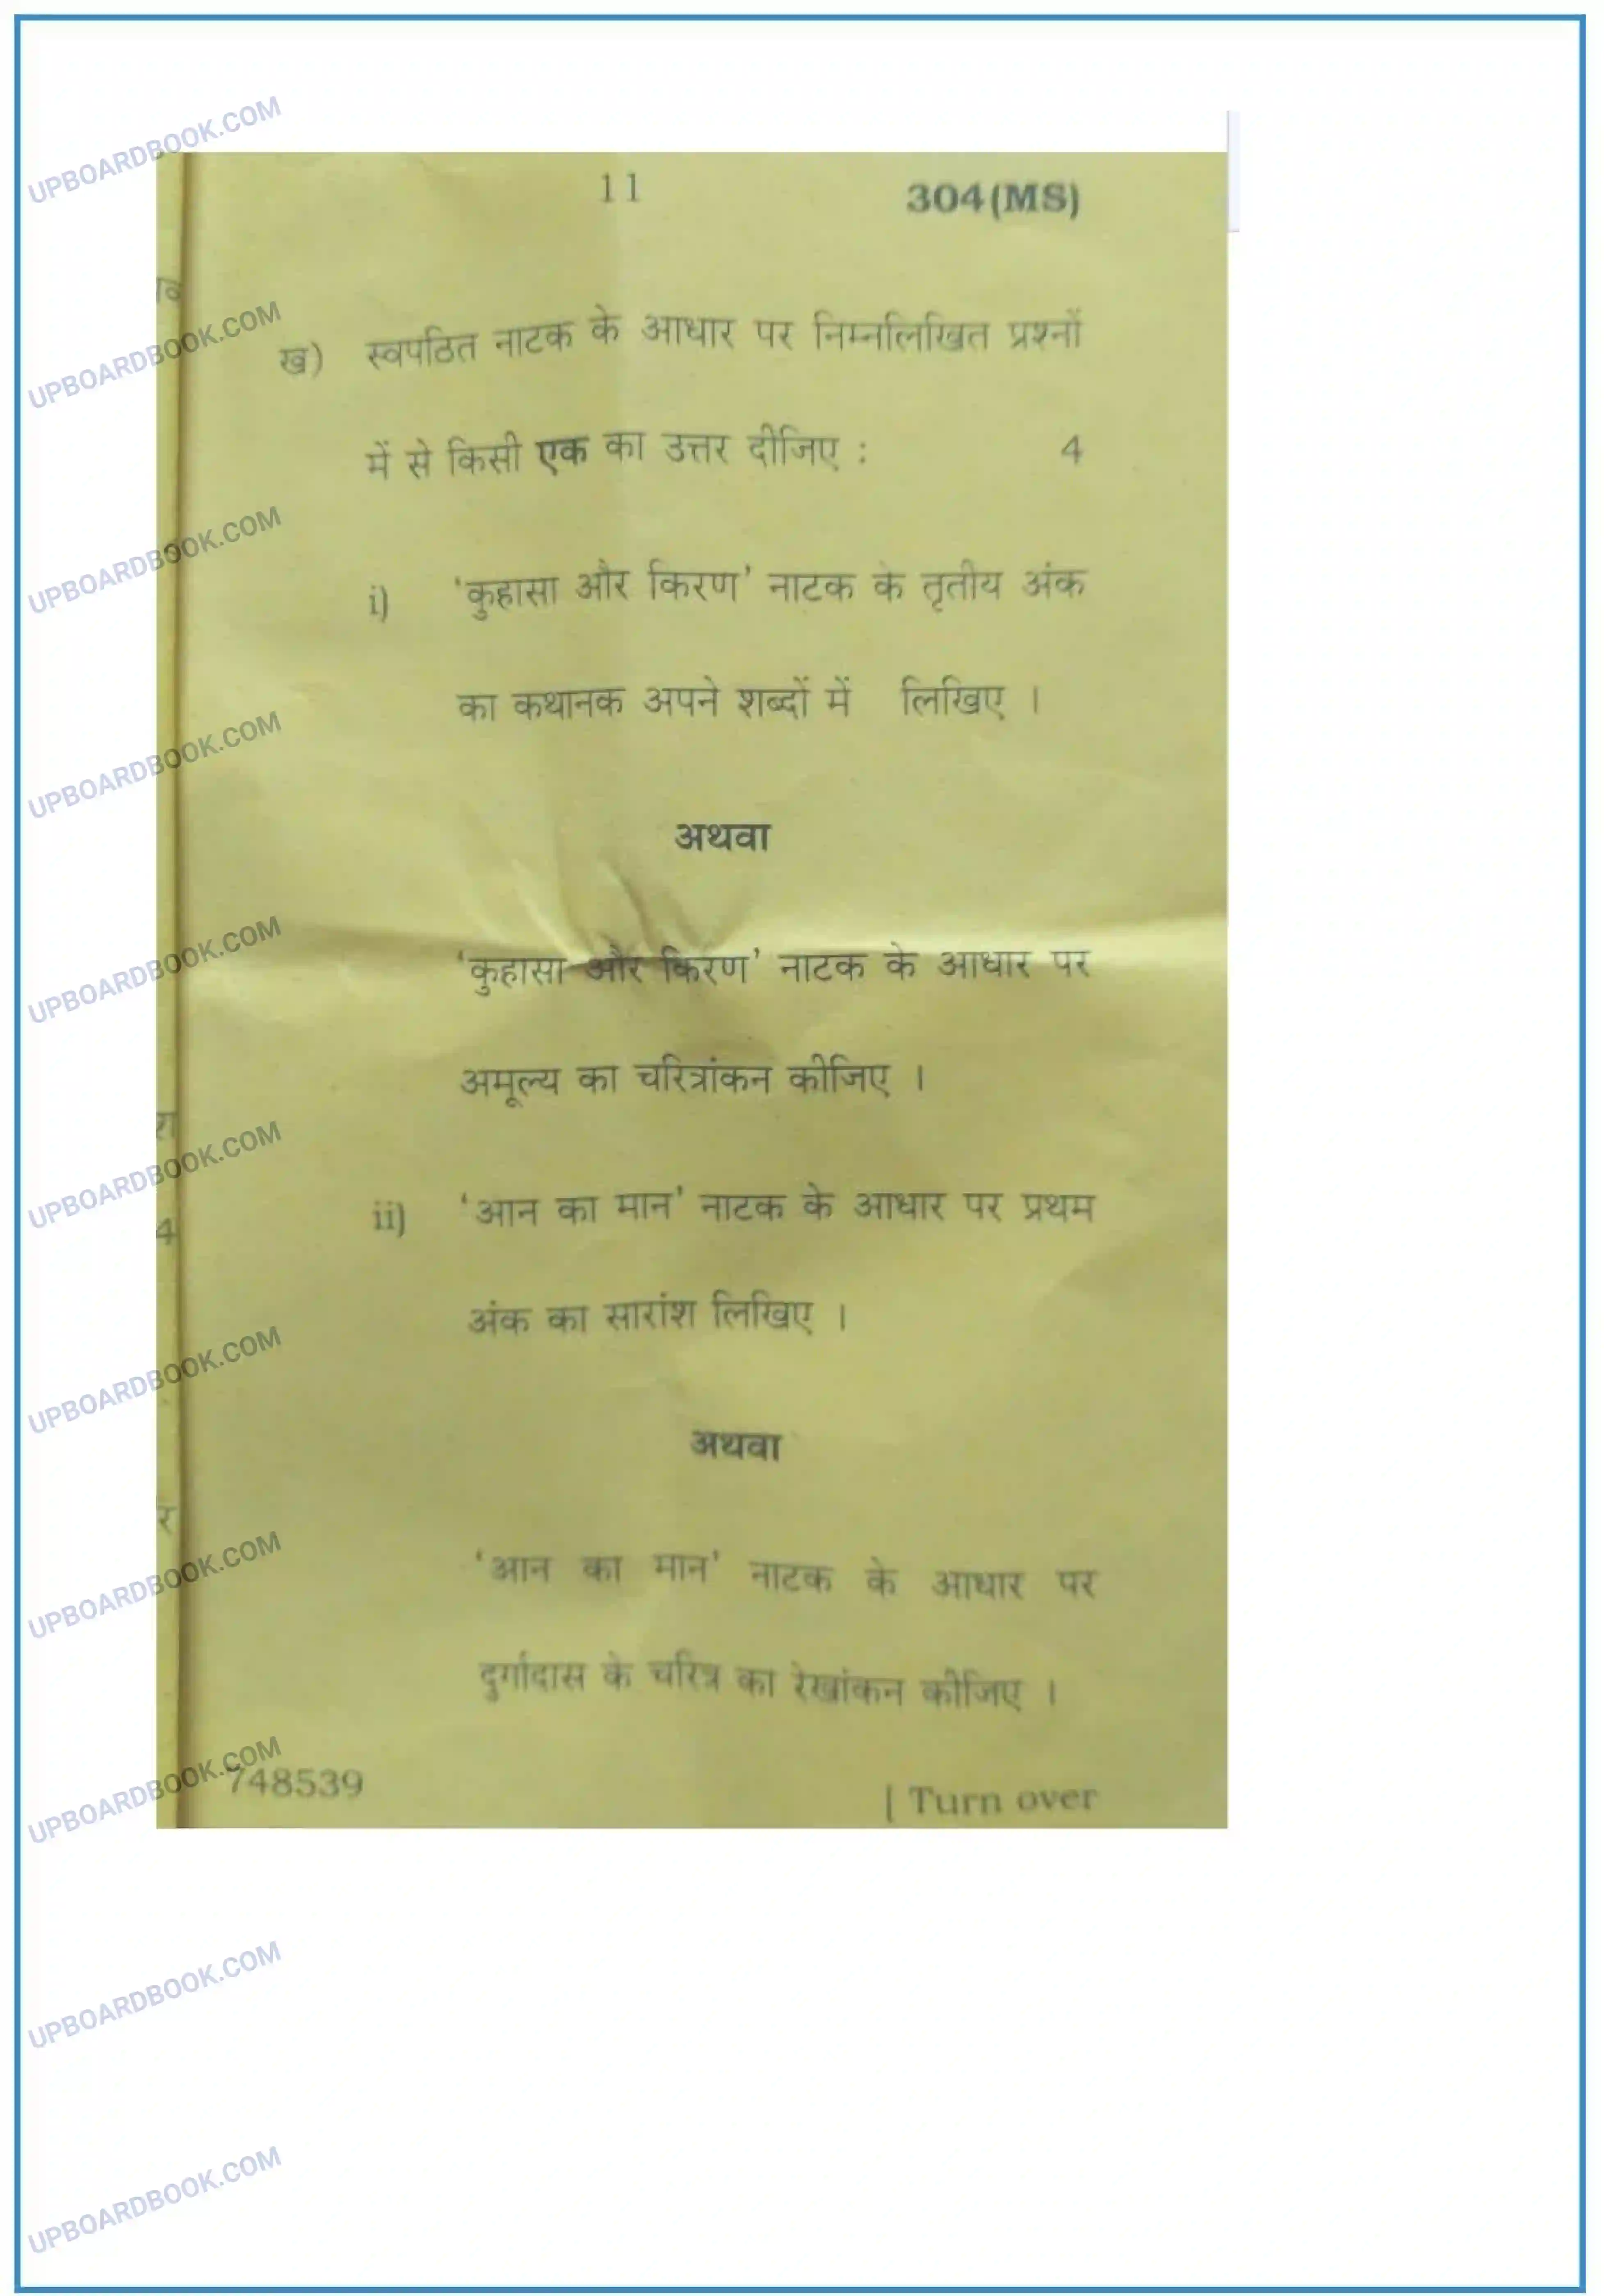 11
304(MS)
ख) स्वपठित नाटक के आधार पर निम्नलिखित प्रश्नों
में से किसी एक का उत्तर दीजिए : 4
i) 'कुहासा और किरण' नाटक के तृतीय अंक
का कथानक अपने शब्दों में लिखिए ।
अथवा
'कुहासा और किरण' नाटक के आधार पर
अमूल्य का चरित्रांकन कीजिए ।
ii) 'आन का मान' नाटक के आधार पर प्रथम
अंक का सारांश लिखिए ।
अथवा
'आन का मान' नाटक के आधार पर
दुर्गादास के चरित्र का रेखांकन कीजिए ।
748539
| Turn over
UPBOARDBOOK.COM
UPBOARDBOOK.COM
UPBOARDBOOK.COM
UPBOARDBOOK.COM
UPBOARDBOOK.COM
UPBOARDBOOK.COM
UPBOARDBOOK.COM
UPBOARDBOOK.COM
UPBOARDBOOK.COM
UPBOARDBOOK.COM
UPBOARDBOOK.COM